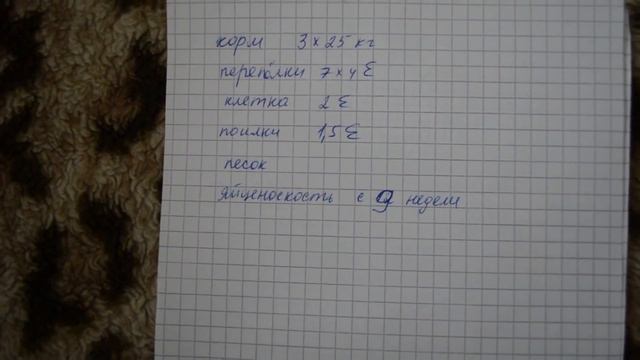 корм 3 x 25 кг
перепёлки 7 x 4 €
клетка 2 €
поилки 1,5 €
песок
яйценоскость с 9 недели